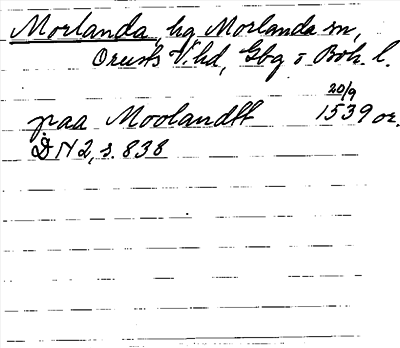 Morlanda, hg, Morlanda sn,
Orusts V. hd, Gbg o Boh. l.
20/9
paa Moolandh 1539 or.
DN 2, s. 838